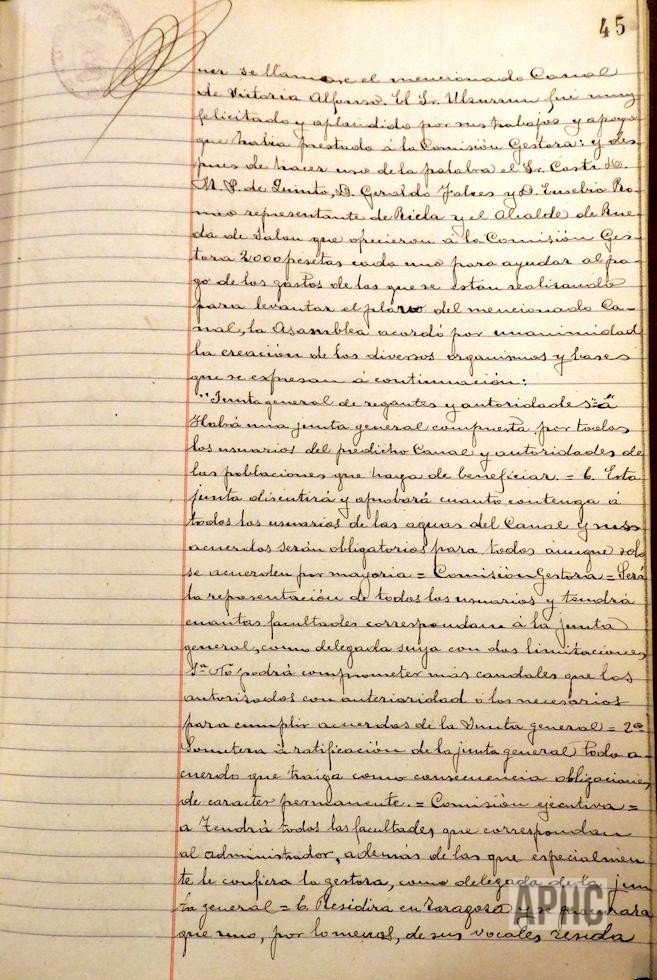 45
ner se llamase el mencionado Canal
de Victoria Alfonso. El Sr. Uzurrun fué muy
felicitado y aplaudido por sus trabajos y apoyo
que habia prestado á la Comisión Gestora: y des
pues de hacer uso de la palabra el Sr. Costi D.
M. P. de Quinto, D. Geraldo Jalees y D. Eusebio Ro-
meo representante de Ricla y el Alcalde de Rue
da de Jalon que ofrecieron á la Comisión Ges-
tora 2000 pesetas cada uno para ayudar al pa-
go de los gastos de los que se estan realizando
para levantar el plano del mencionado Ca-
nal, la Asamblea acordó por unanimidad
la creación de los diversos organismos y bases
que se expresan á continuación:
"Junta general de regantes y autoridades = a"
Habrá una junta general compuesta por todos
los usuarios del predicho Canal y autoridades de
las poblaciones que haya de beneficiar. = b. Esta
junta discutirá y aprobará cuanto contenga á
todos los usuarios de las aguas del Canal y sus
acuerdos serán obligatorios para todos aunque solo
se acuerden por mayoria = Comisión Gestora = Será
la representación de todos los usuarios y tendrá
cuantas facultades correspondan á la junta
general, como delegada suya con dos limitaciones
1ª No podrá comprometer más caudales que los
autorizados con anterioridad o los necesarios
para cumplir acuerdos de la Junta general = 2ª
Sometera á ratificación de la junta general todo a-
cuerdo que traiga como consecuencia obligaciones
de caracter permanente. = Comisión ejecutiva =
a Tendrá todos las facultades que correspondan
al administrador, además de las que especialmen
te le confiera la gestora, como delegada de la jun
ta general = b. Residira en Zaragoza y se procurara
que uno, por lo menos, de sus vocales resida
APHC